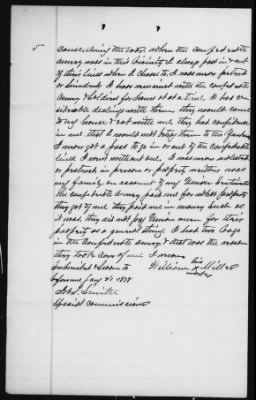 5
cause, during the war, when the confederate
army was in this vicinity I always passed in & out
of their lines when I chose to, I was never pestered
or hindered. I have remained with the confederate
Army & soldiers for hours at a time. I had
considerable dealings with them. they would come
to my house & eat with me, they had confidence
in me that I would not betray them to the Yankees
I never got a pass to go in or out of the confederate
lines I went without one, I was never molested
or pestered in person or property neither was
my family on account of my Union sentiments
The confederate army paid me for what property
they got of me, they paid me in money such as
it was, they did not pay Union men for their
property as a general thing. I had two boys
in the Confederate army & that was the reason
they took care of me I reason
Subscribed & sworn to
before me Jany 21 1878
William X Miller
his
mark
Smith
Special commissioner